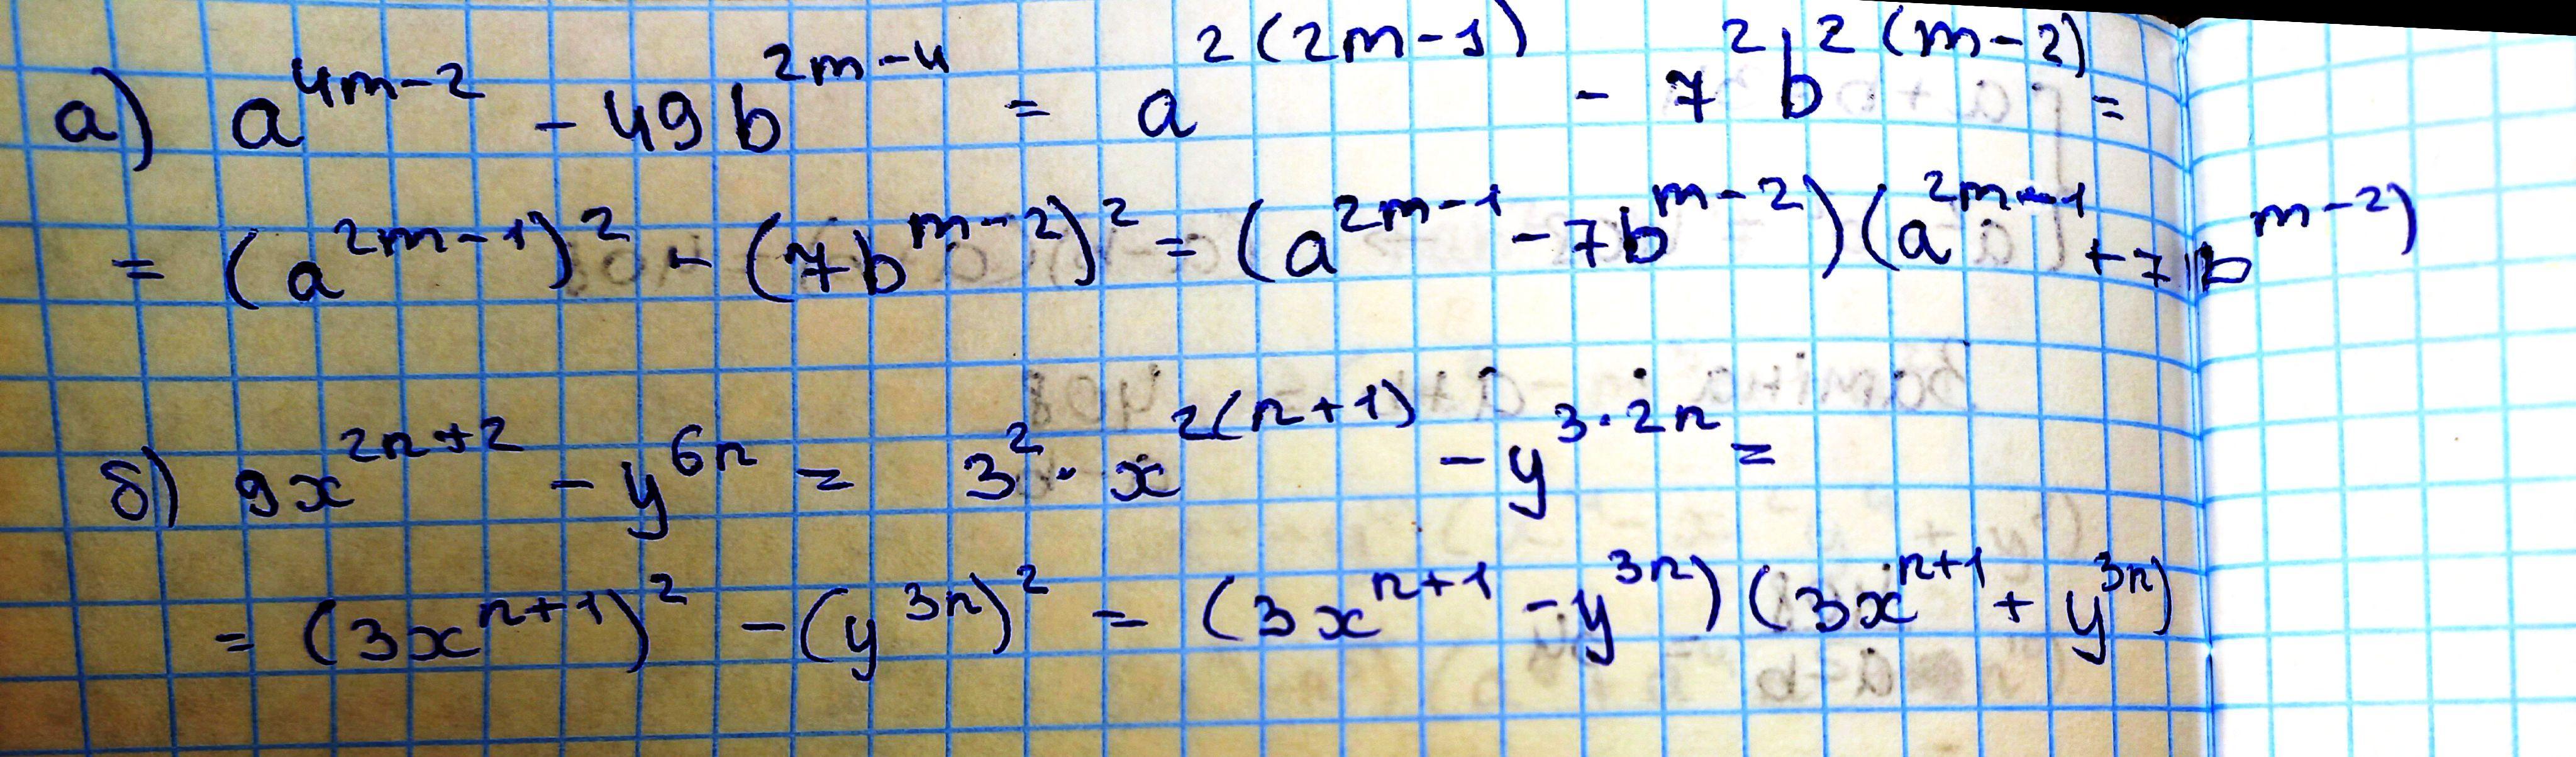 а) a^{4m-2} - 49b^{2m-4} = a^{2(2m-1)} - 7^2 b^{2(m-2)} =
= (a^{2m-1})^2 - (7b^{m-2})^2 = (a^{2m-1} - 7b^{m-2})(a^{2m-1} + 7b^{m-2})
б) 9x^{2n+2} - y^{6n} = 3^2 · x^{2(n+1)} - y^{3·2n} =
= (3x^{n+1})^2 - (y^{3n})^2 = (3x^{n+1} - y^{3n})(3x^{n+1} + y^{3n})